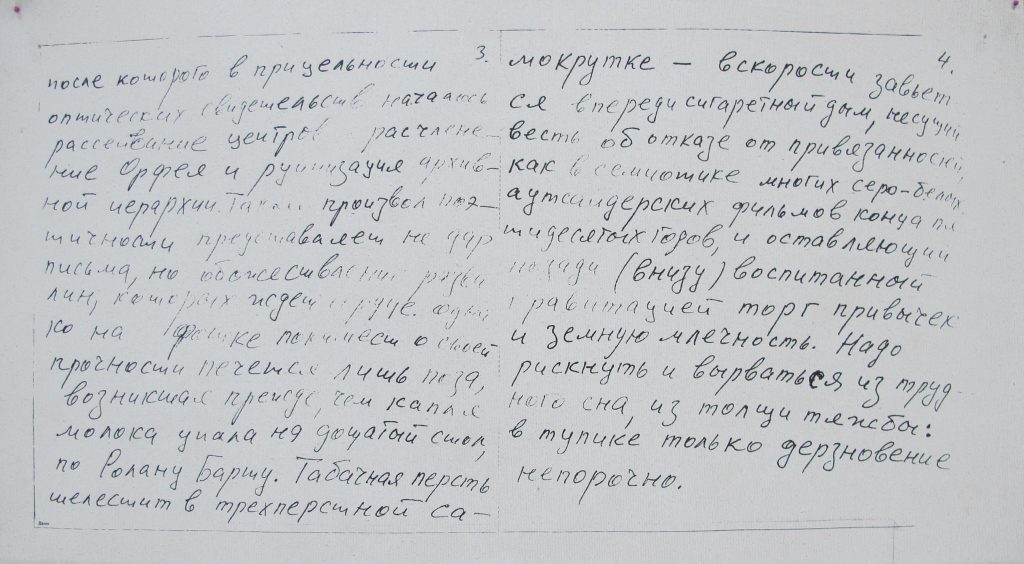 3.
после которого в прицельности
оптических свидетельств началось
рассеивание центров расчлене-
ние Орфея и руинизация архив-
ной иерархии. Такой произвол поэ-
тичности представляет не дар
письма, но обожествление
лин, которых ждет сердце. Одна
ко на фоне о своей
прочности печется лишь поза,
возникшая прежде, чем капля
молока упала на дощатый стол,
по Ролану Барту. Табачная персть
шелестит в трехперстной са-
4.
мокрутке — вскорости завьет
ся впереди сигаретный дым, несущий
весть об отказе от привязанностей,
как в семиотике многих серо-белых
аутсайдерских фильмов конца пя
тидесятых годов, и оставляющий
позади (внизу) воспитанный
гравитацией торг привычек
и земную млечность. Надо
рискнуть и вырваться из труд-
ного сна, из толщи тяжбы:
в тупике только дерзновение
непорочно.